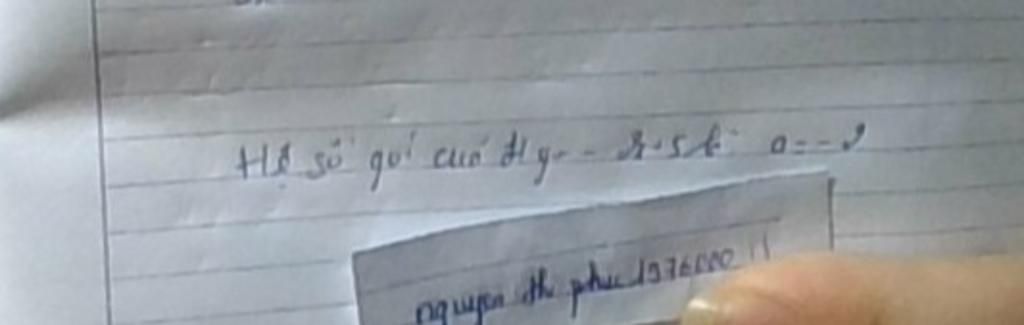 Hệ số gói của đt y = - 2x - 5 là a = - 2
nguyen thi phuc 1976000